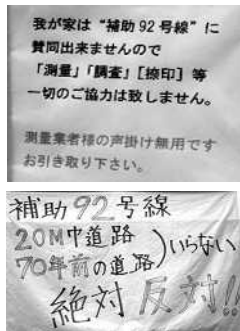 我が家は“補助92号線”に
賛同出来ませんので
「測量」「調査」[捺印]等
一切のご協力は致しません。
測量業者様の声掛け無用です
お引き取り下さい。
補助92号線
20M巾道路
70年前の道路)いらない
絶対反対!!